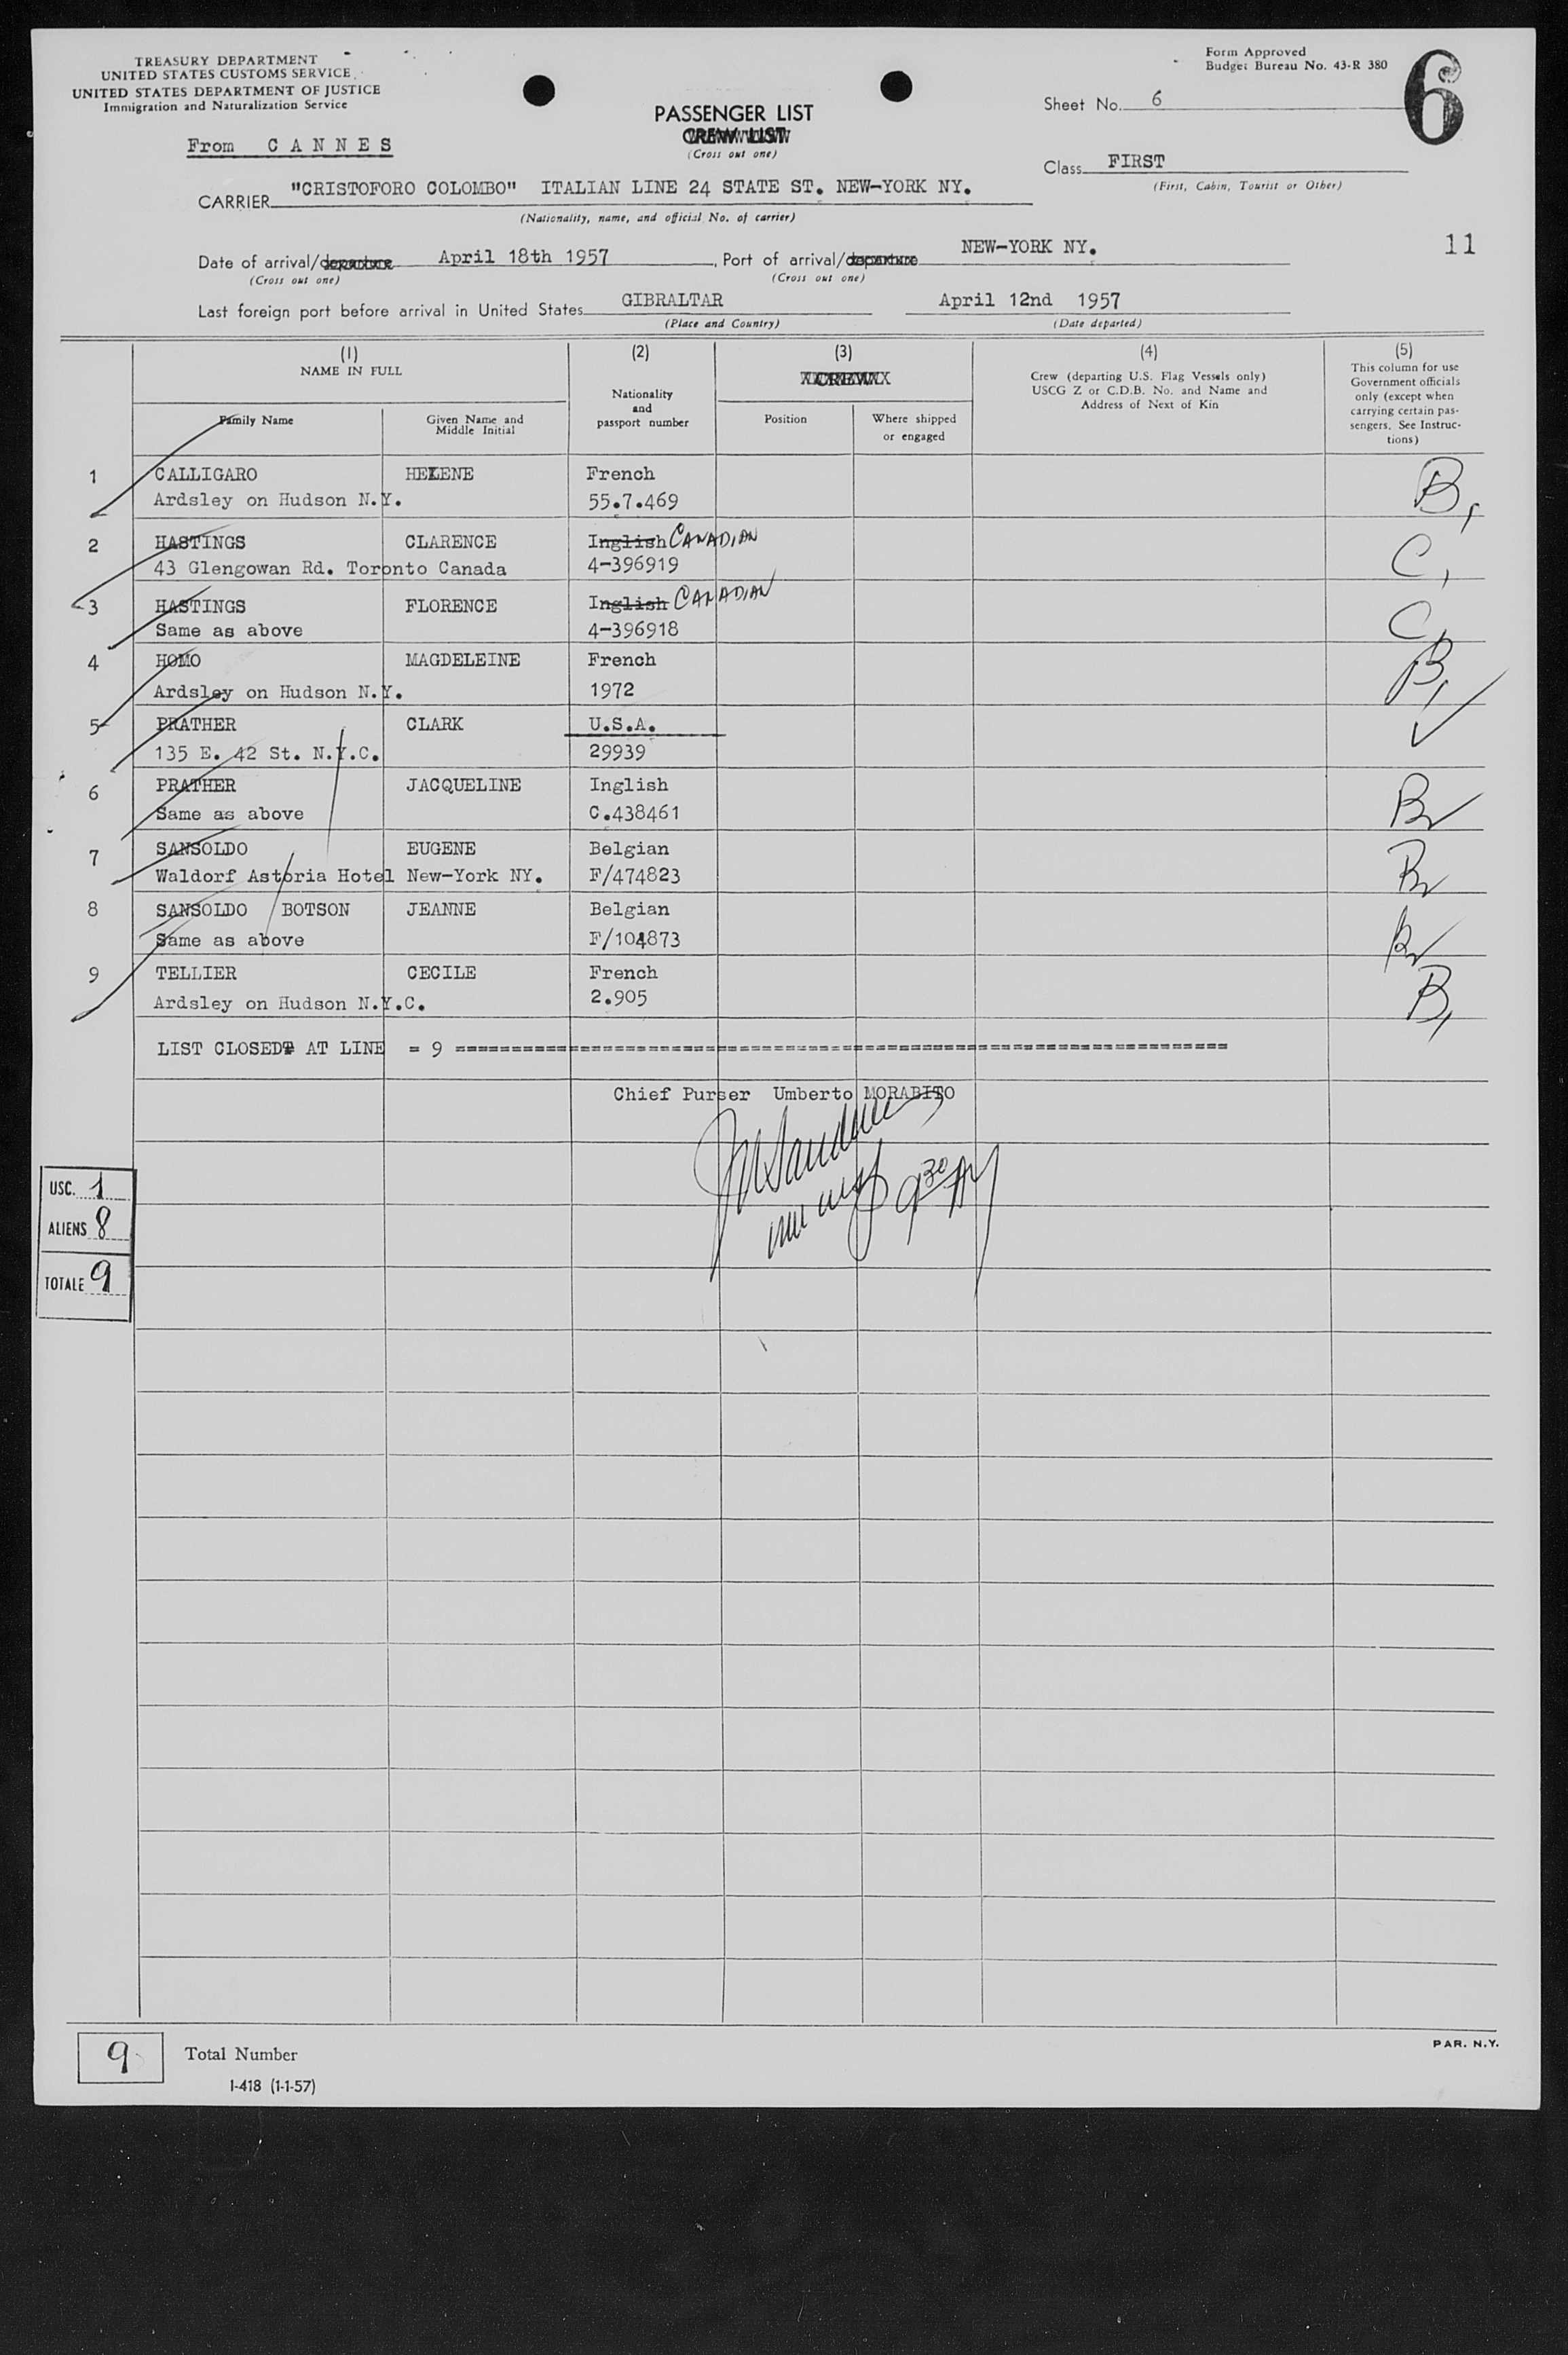 TREASURY DEPARTMENT
UNITED STATES CUSTOMS SERVICE
UNITED STATES DEPARTMENT OF JUSTICE
Immigration and Naturalization Service
Form Approved
Budget Bureau No. 43-R 380
6
From C A N N E S
PASSENGER LIST
CREW LIST
(Cross out one)
Sheet No. 6
Class FIRST
(First, Cabin, Tourist or Other)
CARRIER "CRISTOFORO COLOMBO" ITALIAN LINE 24 STATE ST. NEW-YORK NY.
(Nationality, name, and official No. of carrier)
11
Date of arrival/departure April 18th 1957, Port of arrival/departure NEW-YORK NY.
(Cross out one) (Cross out one)
Last foreign port before arrival in United States GIBRALTAR April 12nd 1957
(Place and Country) (Date departed)
(1)
NAME IN FULL
Family Name
Given Name and
Middle Initial
(2)
Nationality
and
passport number
(3)
XXCREWXX
Position
Where shipped
or engaged
(4)
Crew (departing U.S. Flag Vessels only)
USCG Z or C.D.B. No. and Name and
Address of Next of Kin
(5)
This column for use
Government officials
only (except when
carrying certain pas-
sengers. See Instruc-
tions)
1 CALLIGARO HELENE French B,
Ardsley on Hudson N.Y. 55.7.469
2 HASTINGS CLARENCE Inglish CANADIAN C,
43 Glengowan Rd. Toronto Canada 4-396919
3 HASTINGS FLORENCE Inglish CANADIAN C,
Same as above 4-396918
4 HOMO MAGDELEINE French B,
Ardsley on Hudson N.Y. 1972
5 PRATHER CLARK U.S.A. ✓
135 E. 42 St. N.Y.C. 29939
6 PRATHER JACQUELINE Inglish B✓
Same as above C.438461
7 SANSOLDO EUGENE Belgian B✓
Waldorf Astoria Hotel New-York NY. F/474823
8 SANSOLDO / BOTSON JEANNE Belgian B✓
Same as above F/104873
9 TELLIER CECILE French B,
Ardsley on Hudson N.Y.C. 2.905
LIST CLOSED AT LINE = 9 ==========
Chief Purser Umberto MORABITO
USC. 1
ALIENS 8
TOTALE 9
9 Total Number
I-418 (1-1-57)
PAR. N.Y.